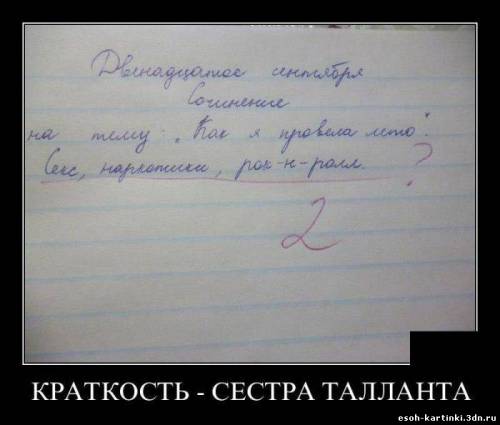 Двенадцатое сентября
Сочинение
на тему: „Как я провела лето".
Секс, наркотики, рок-н-ролл. ?
2
КРАТКОСТЬ - СЕСТРА ТАЛЛАНТА
esoh-kartinki.3dn.ru